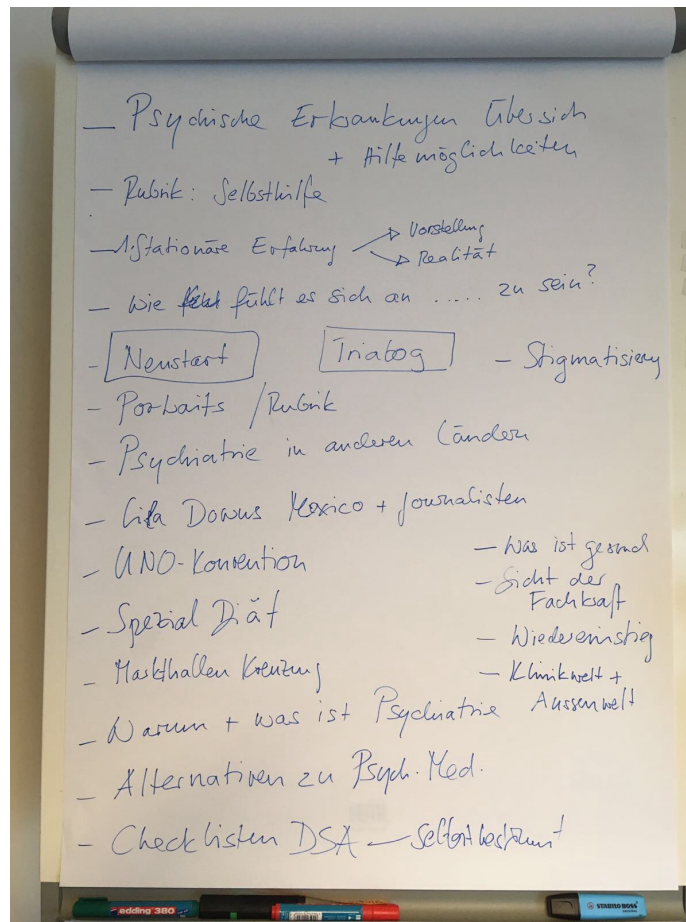 – Psychische Erkrankungen Übersich
+ Hilfemöglichkeiten
– Rubrik: Selbsthilfe
– 1. Stationäre Erfahrung
Vorstellung
Realität
– Wie fühlt es sich an ..... zu sein?
– Neustart
Trialog
– Stigmatisierung
– Portraits / Rubrik
– Psychiatrie in anderen Ländern
– Lila Downs Mexico + Journalisten
– UNO-Konvention
– Spezial Diät
– Markthallen Kreuzung
– Warum + was ist Psychiatrie
– Alternativen zu Psych. Med.
– Checklisten DSA – selbstbestimmt
– Was ist gesund
– Sicht der
Fachkraft
– Wiedereinstieg
– Klinikwelt +
Aussenwelt
edding 380
STABILO BOSS